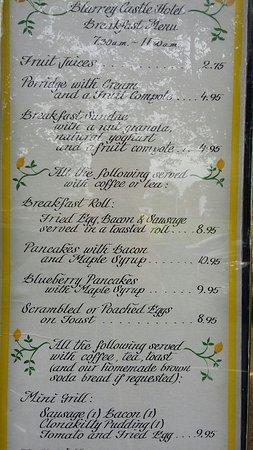 Blarney Castle Hotel
Breakfast Menu
7.30a.m. - 11.00a.m.
Fruit Juices ... 2.75
Porridge with Cream
and a Fruit Compote ... 4.95
Breakfast Sundae
with a nut granola,
natural yoghurt
and a fruit compote ... 4.95
All the following served
with coffee or tea:
Breakfast Roll:
Fried Egg, Bacon & Sausage
served in a toasted roll ... 8.95
Pancakes with Bacon
and Maple Syrup ... 10.95
Blueberry Pancakes
with Maple Syrup ... 9.95
Scrambled or Poached Eggs
on Toast ... 8.95
All the following served
with coffee, tea, toast
(and our homemade brown
soda bread if requested):
Mini Grill:
Sausage (1) Bacon (1)
Clonakilty Pudding (1)
Tomato and Fried Egg ... 9.95